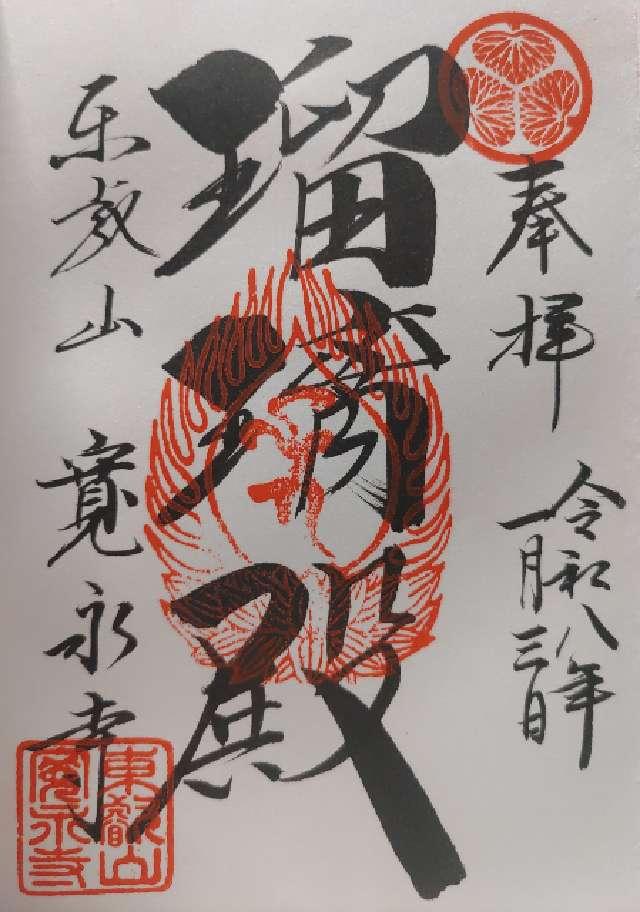 奉拝
令和八年
一月三日
瑠璃殿
東叡山 寛永寺
東叡山
寛永寺